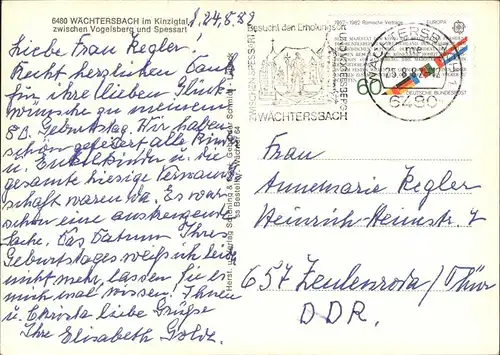 6480 WÄCHTERSBACH im Kinzigtal,
zwischen Vogelsberg und Spessart
24.8.82
Liebe Frau Kegler!
Recht herzlichen Dank
für ihre lieben Glück-
wünsche zu meinem
80. Geburtstag. Wir haben
schön gefeiert alle Kinder
u. Enkelkinder u. die
gesamte hiesige Verwandt-
schaft waren da. Es war
schon eine anstrengende
Sache. Das Datum Ihres
Geburtstages weiß ich leider
nicht mehr, lassen Sie es
mich mal wissen. Ihnen
u. Christa liebe Grüße
Ihre Elisabeth
Besucht den Erholungsort
WÄCHTERSBACH
1957-1982 Römische Verträge
EUROPA
60
DEUTSCHE BUNDESPOST
WÄCHTERSBACH 1
25.8.82
6480
Frau
Annemarie Kegler
Heinrich-Heinestr. 7
657 Zeulenroda/Thür
DDR.